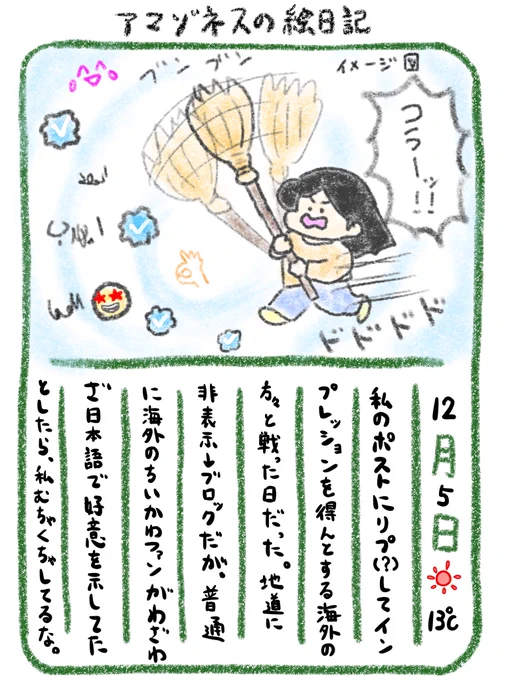 アマゾネスの絵日記
ブンブン
イメージ図
コラーッ!!
ドドドド
12月5日
13℃
私のポストにリプ(?)してイン
プレッションを得んとする海外の
方々と戦った日だった。地道に
非表示→ブロックだが、普通
に海外のちいかわファンがわざわ
ざ日本語で好意を示してた
としたら、私むちゃくちゃしてるな。